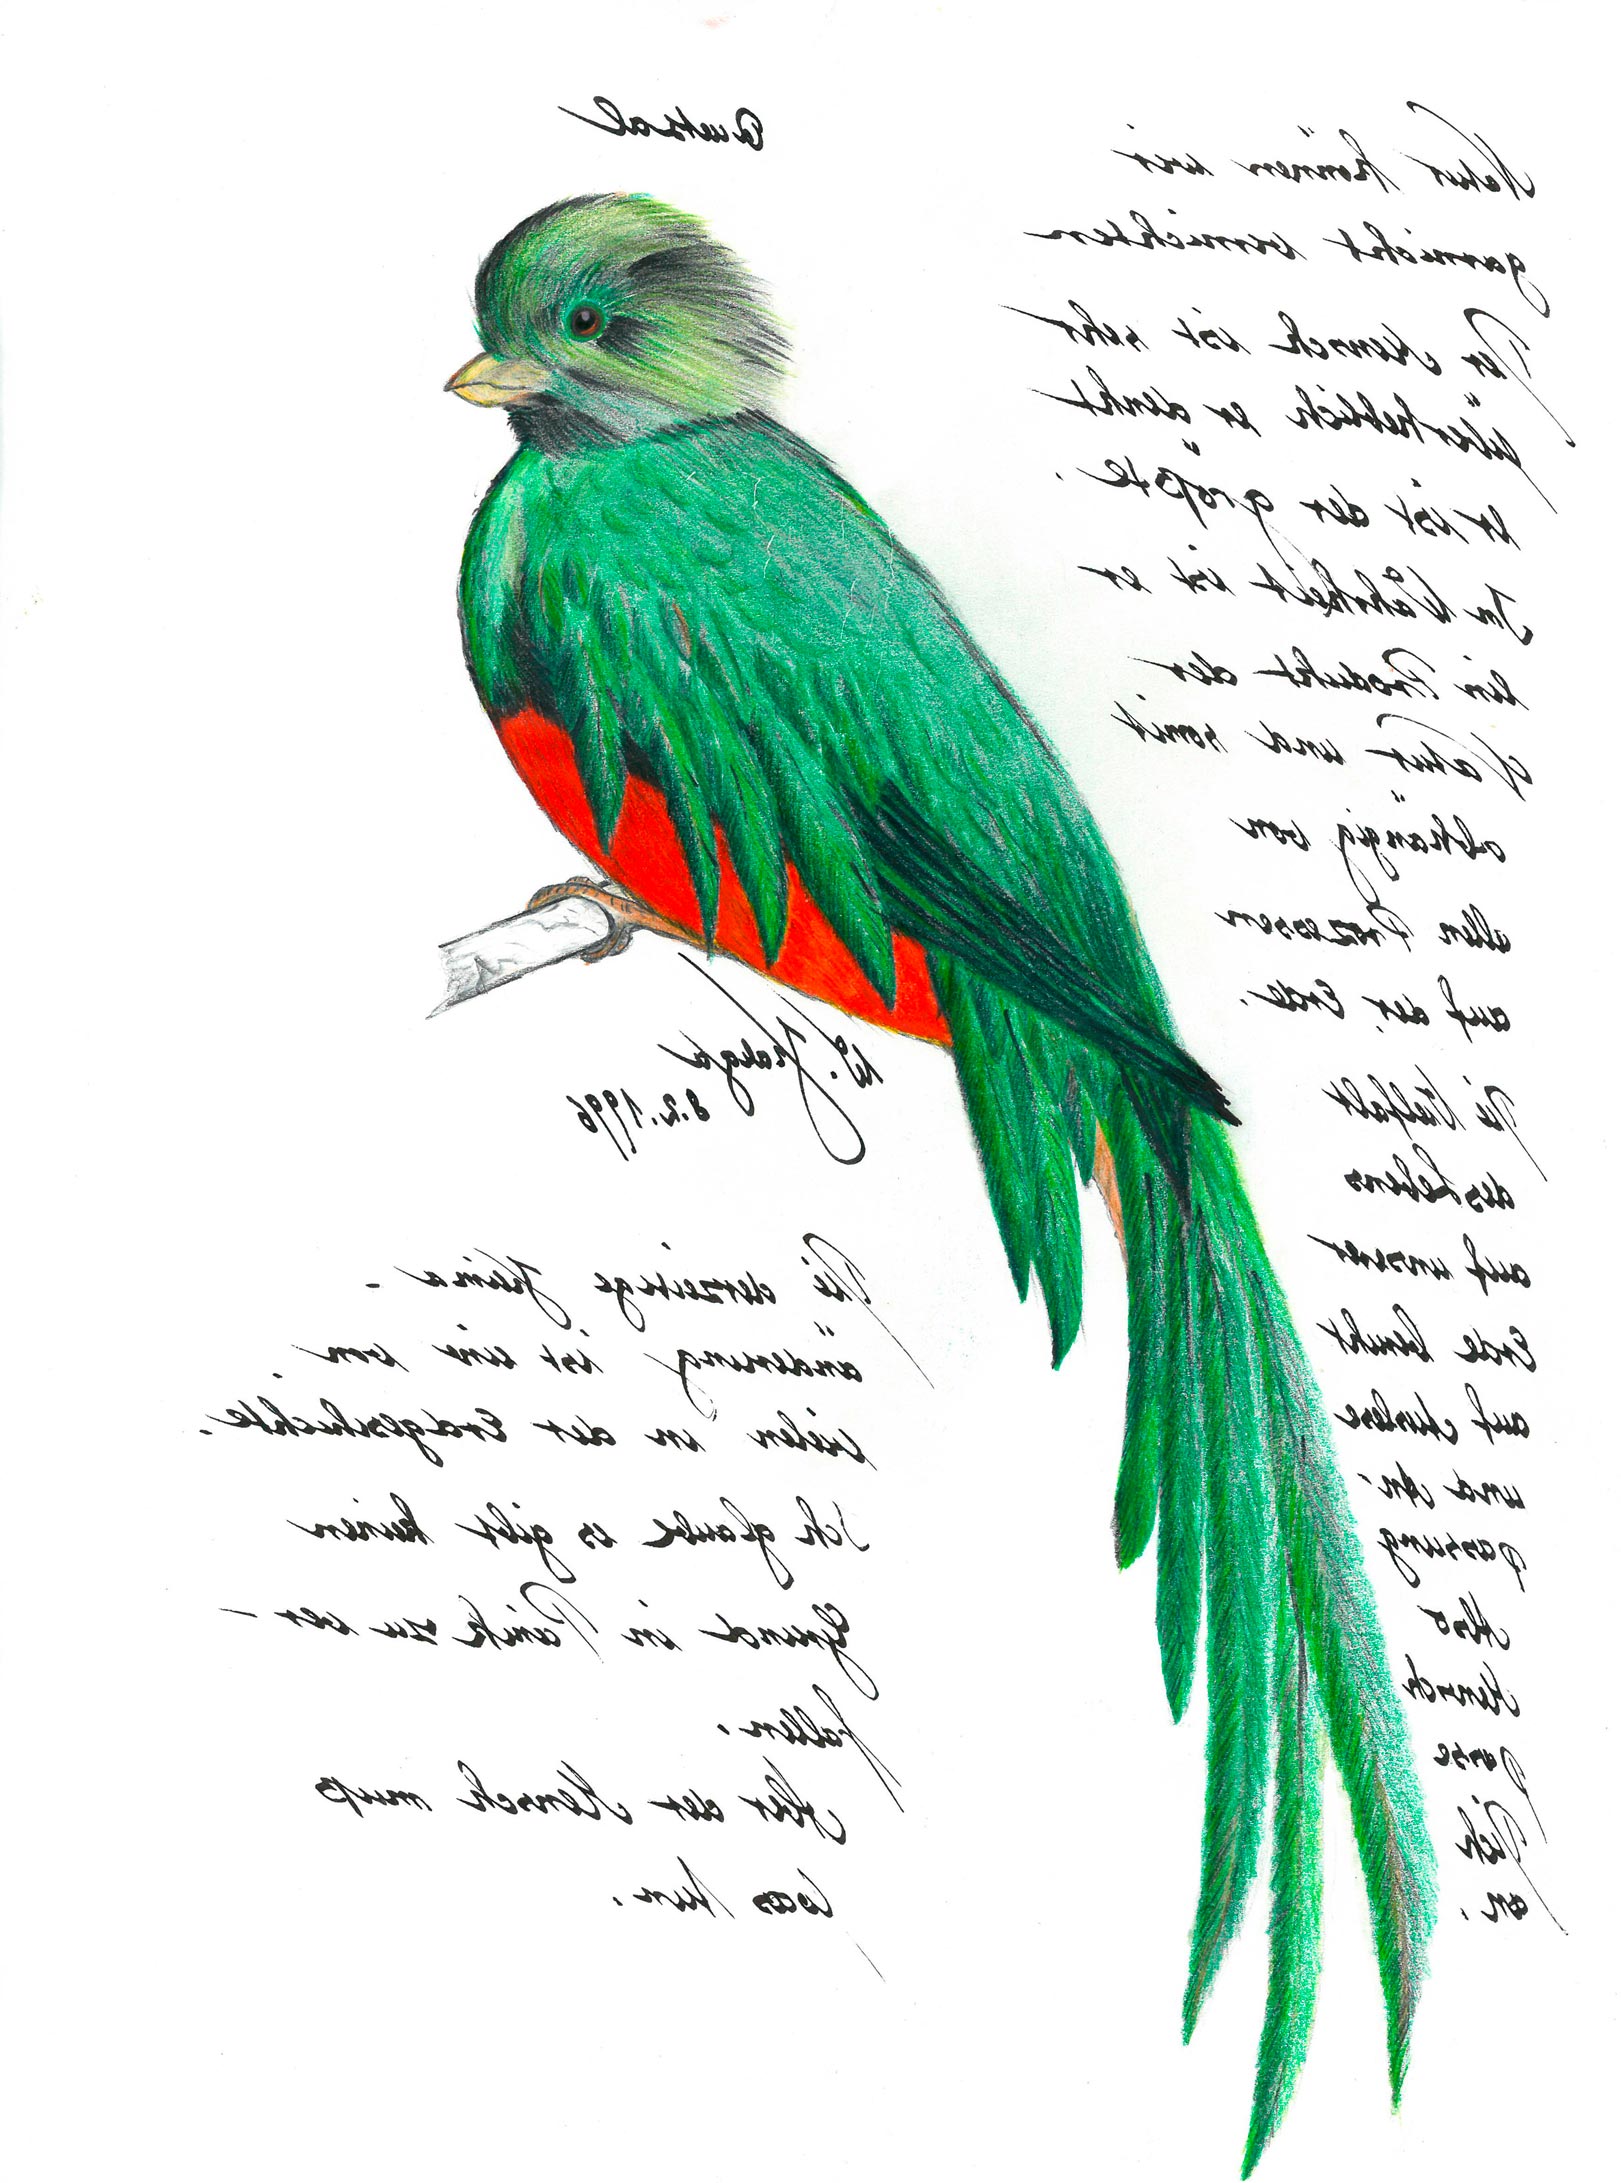 Quetsal
Natur können wir
garnicht vernichten
Der Mensch ist sehr
überheblich er denkt
er ist der größte.
In Wahrheit ist er
ein Produkt der
Natur und somit
abhängig von
allen Prozessen
auf der Erde.
Die Vielfalt
des Lebens
auf unserer
Erde beruht
auf Auslese
und An-
passung
Also
Mensch
passe
Dich
an.
8.2.1996
Die derzeitige Klima-
änderung ist eine von
vielen in der Erdgeschichte.
Ich glaube es gibt keinen
Grund in Panik zu ver-
fallen.
Aber der Mensch muß
was tun.